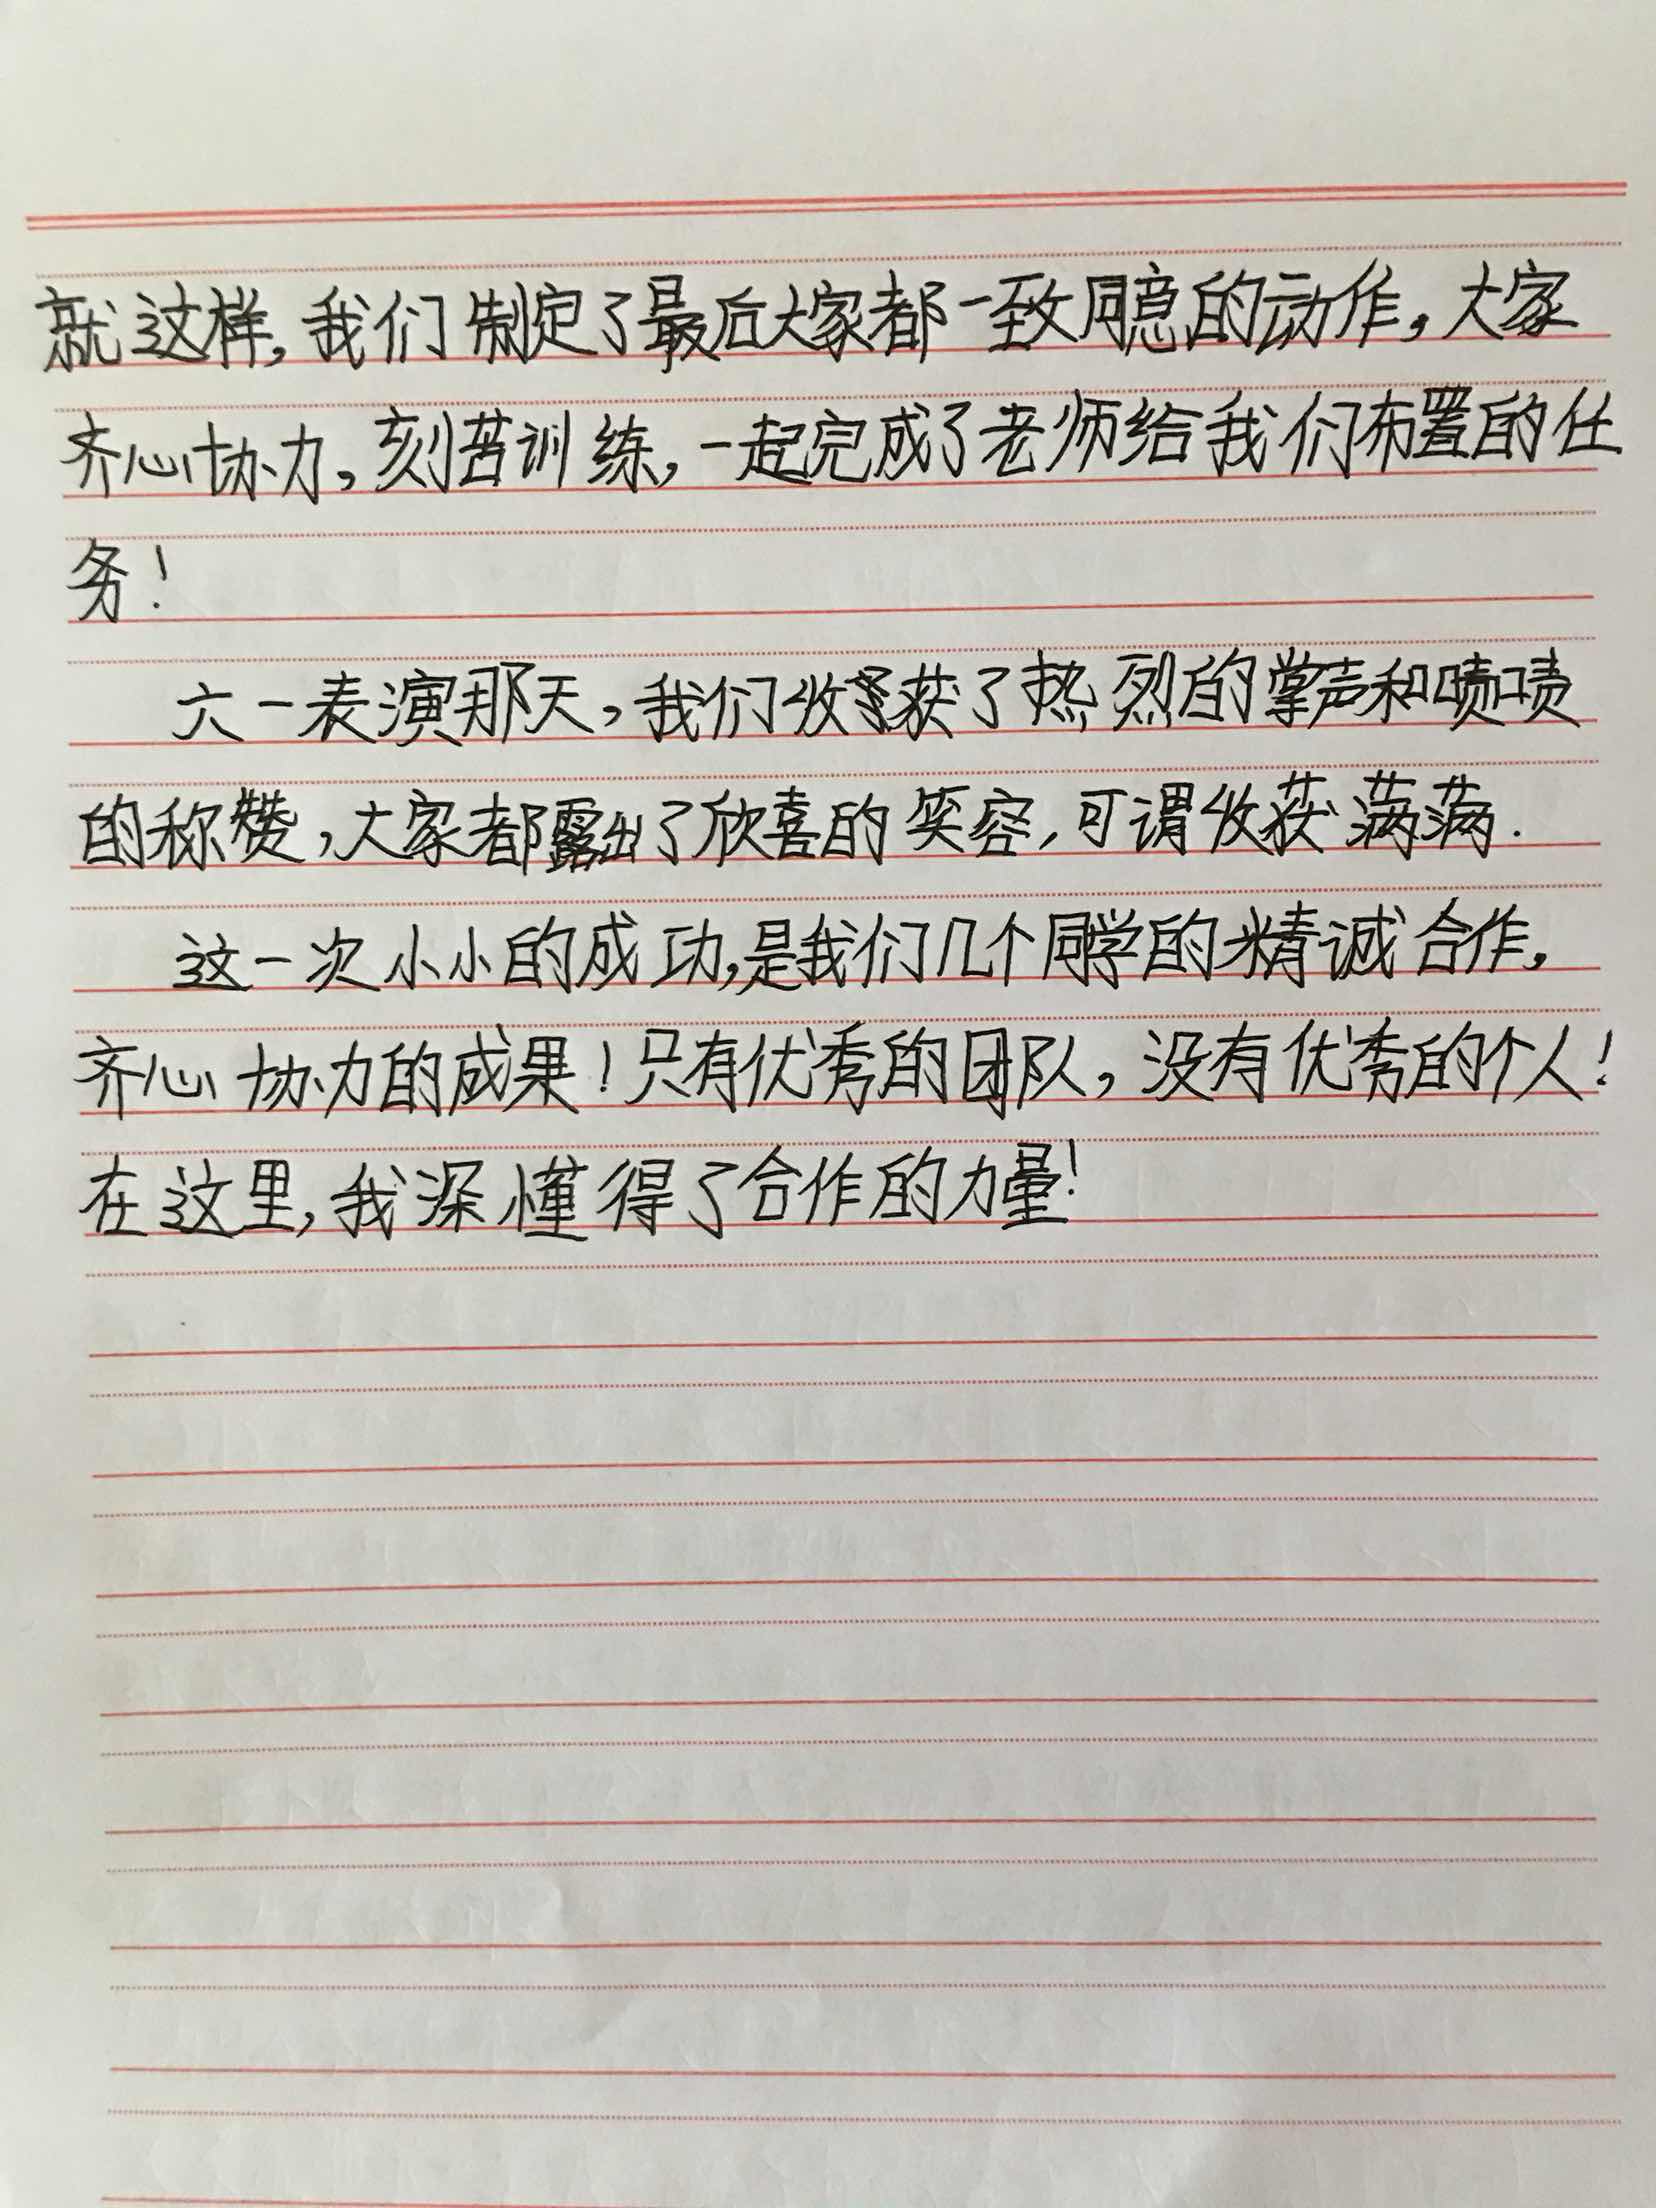 就这样，我们制定了最后大家都一致同意的动作，大家
齐心协力，刻苦训练，一起完成了老师给我们布置的任
务！
六一表演那天，我们收获了热烈的掌声和啧啧
的称赞，大家都露出了欣喜的笑容，可谓收获满满.
这一次小小的成功，是我们几个同学的精诚合作，
齐心协力的成果！只有优秀的团队，没有优秀的个人！
在这里，我深懂得了合作的力量！